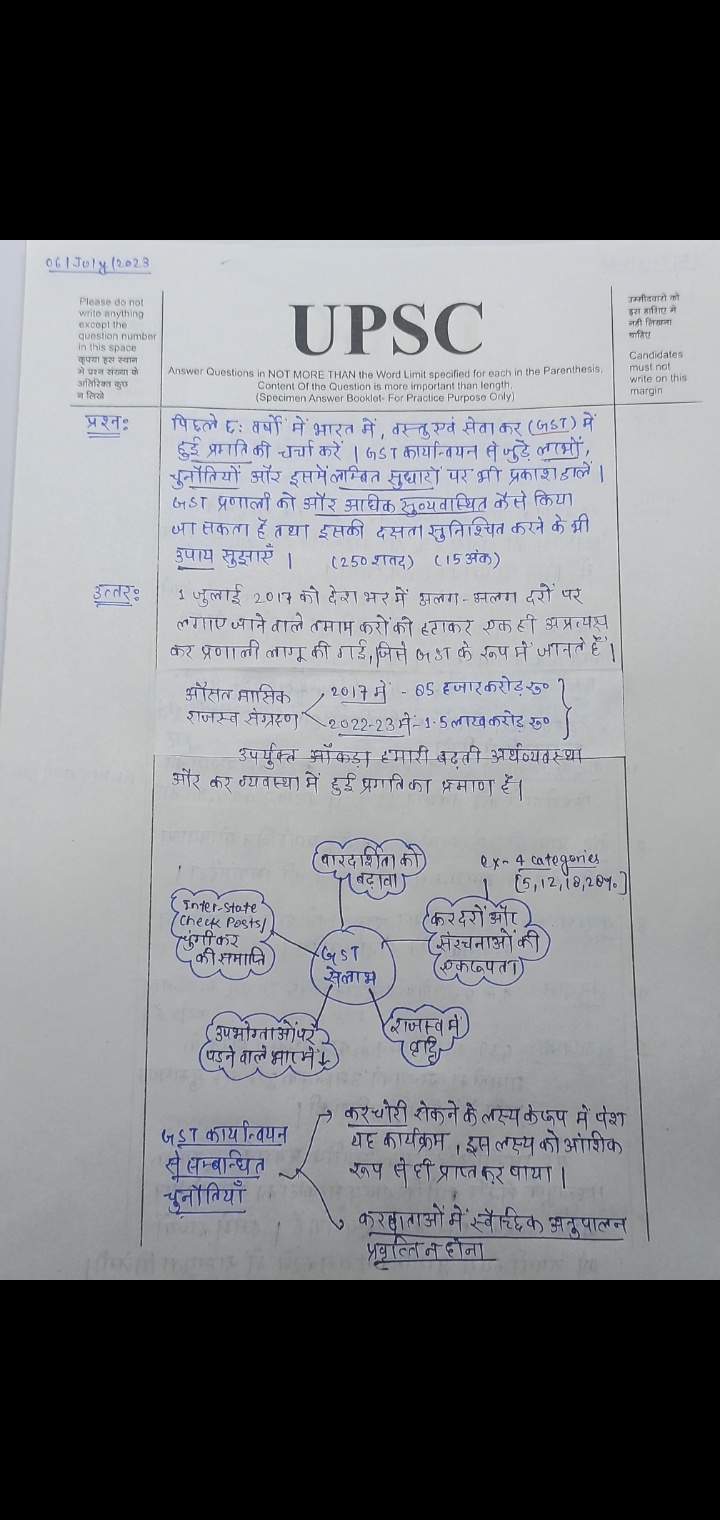 06/July/2023
Please do not
write anything
except the
question number
in this space
कृपया इस स्थान
में प्रश्न संख्या के
अतिरिक्त कुछ
न लिखे
UPSC
Answer Questions in NOT MORE THAN the Word Limit specified for each in the Parenthesis,
Content Of the Question is more important than length,
(Specimen Answer Booklet- For Practice Purpose Only)
उम्मीदवारो को
इस हाशिए मे
नही लिखना
चाहिए
Candidates
must not
write on this
margin
प्रश्न:
पिछले छ: वर्षों में भारत में, वस्तु एवं सेवा कर (GST) में
हुई प्रगति की चर्चा करें। GST कार्यान्वयन से जुड़े लाभों,
चुनौतियों और इसमें लम्बित सुधारों पर भी प्रकाश डालें।
GST प्रणाली को और अधिक सुव्यवस्थित कैसे किया
जा सकता है तथा इसकी दक्षता सुनिश्चित करने के भी
उपाय सुझाएँ। (250 शब्द) (15 अंक)
उत्तर:
1 जुलाई 2017 को देश भर में अलग-अलग दरों पर
लगाए जाने वाले तमाम करों को हटाकर एक ही अप्रत्यक्ष
कर प्रणाली लागू की गई, जिसे GST के रूप में जानते हैं।
औसत मासिक
राजस्व संग्रहण
2017 में - 85 हजार करोड़ रु०
2022-23 में - 1.5 लाख करोड़ रु०
उपर्युक्त आँकड़ा हमारी बढ़ती अर्थव्यवस्था
और कर व्यवस्था में हुई प्रगति का प्रमाण है।
पारदर्शिता को
बढ़ावा
ex- 4 categories
[5,12,18,28%]
Inter-state
Check Posts/
चुंगी कर
की समाप्ति
GST
से लाभ
कर दरों और
संरचनाओं की
एकरूपता
उपभोक्ताओं पर
पड़ने वाले भार में ↓
राजस्व में
वृद्धि
GST कार्यान्वयन
से सम्बन्धित
चुनौतियाँ
→ कर चोरी रोकने के लक्ष्य के रूप में पेश
यह कार्यक्रम, इस लक्ष्य को आंशिक
रूप से ही प्राप्त कर पाया।
→ करदाताओं में स्वैच्छिक अनुपालन
प्रवृत्ति न होना